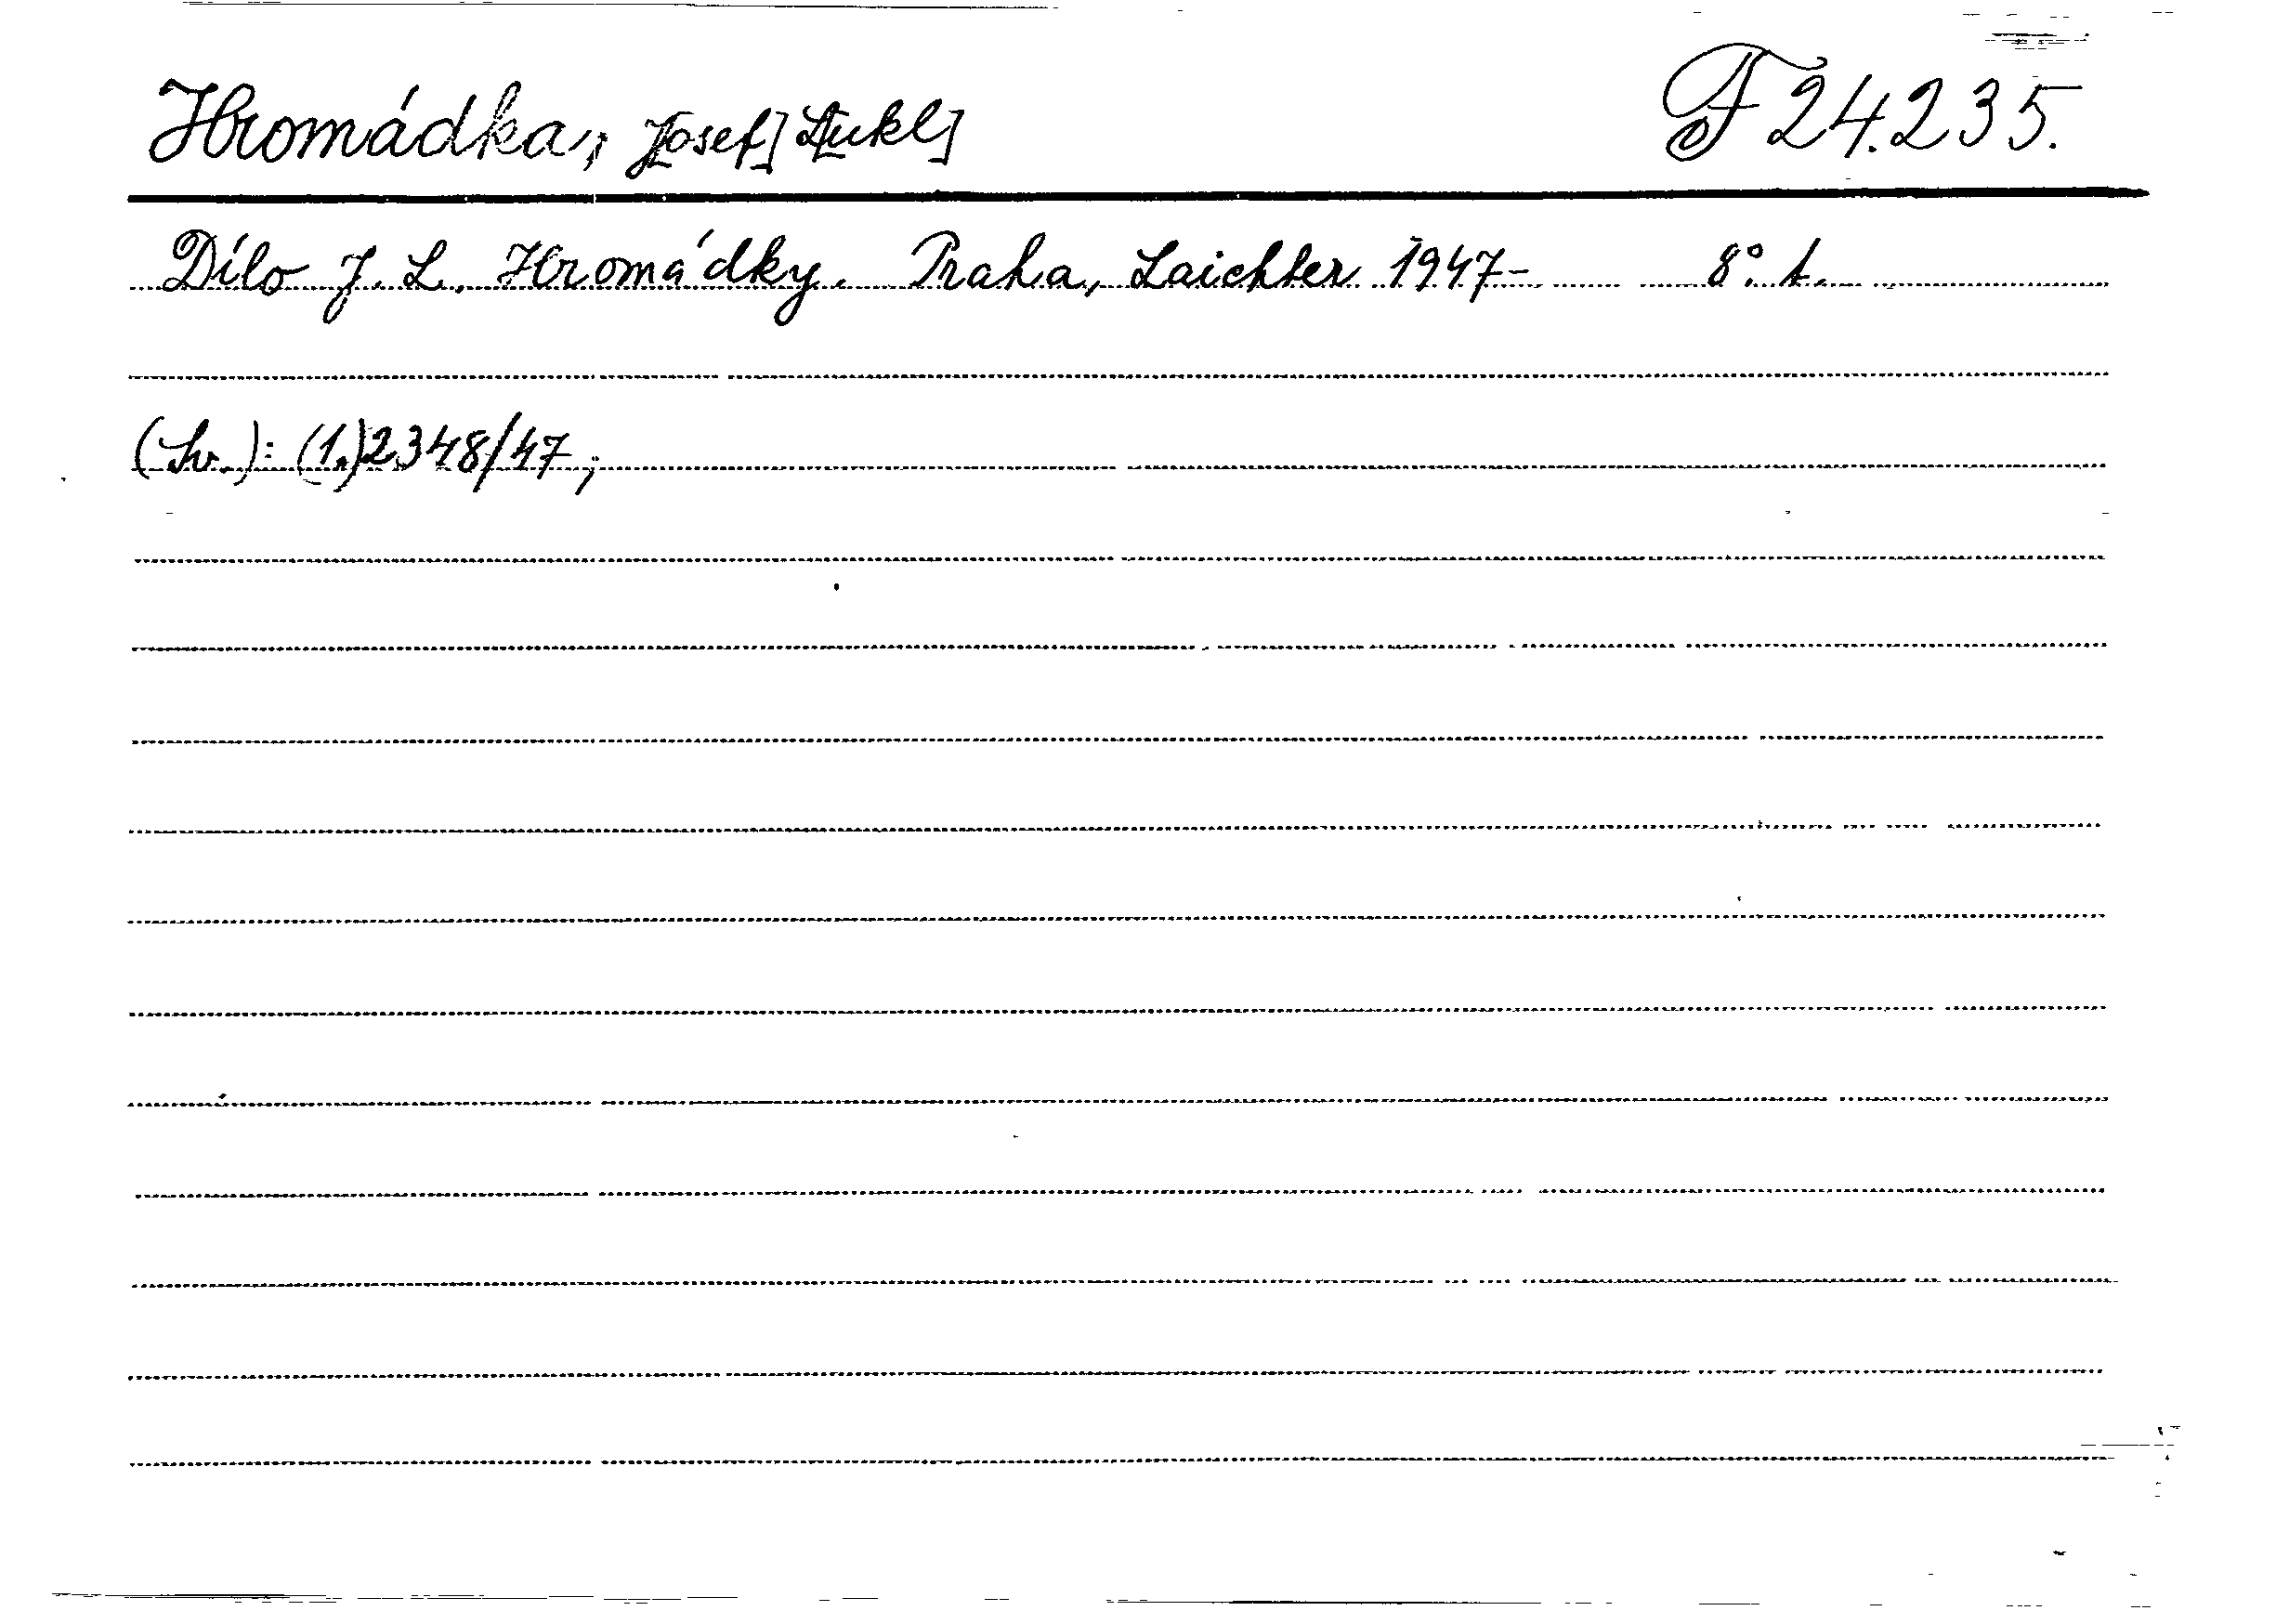 Hromádka, J[osef] L[ukl] F 24.235.
Dílo J. L. Hromádky. Praha, Laichter 1947- 8°. t.
(Sv.): (1.) 2348/47;